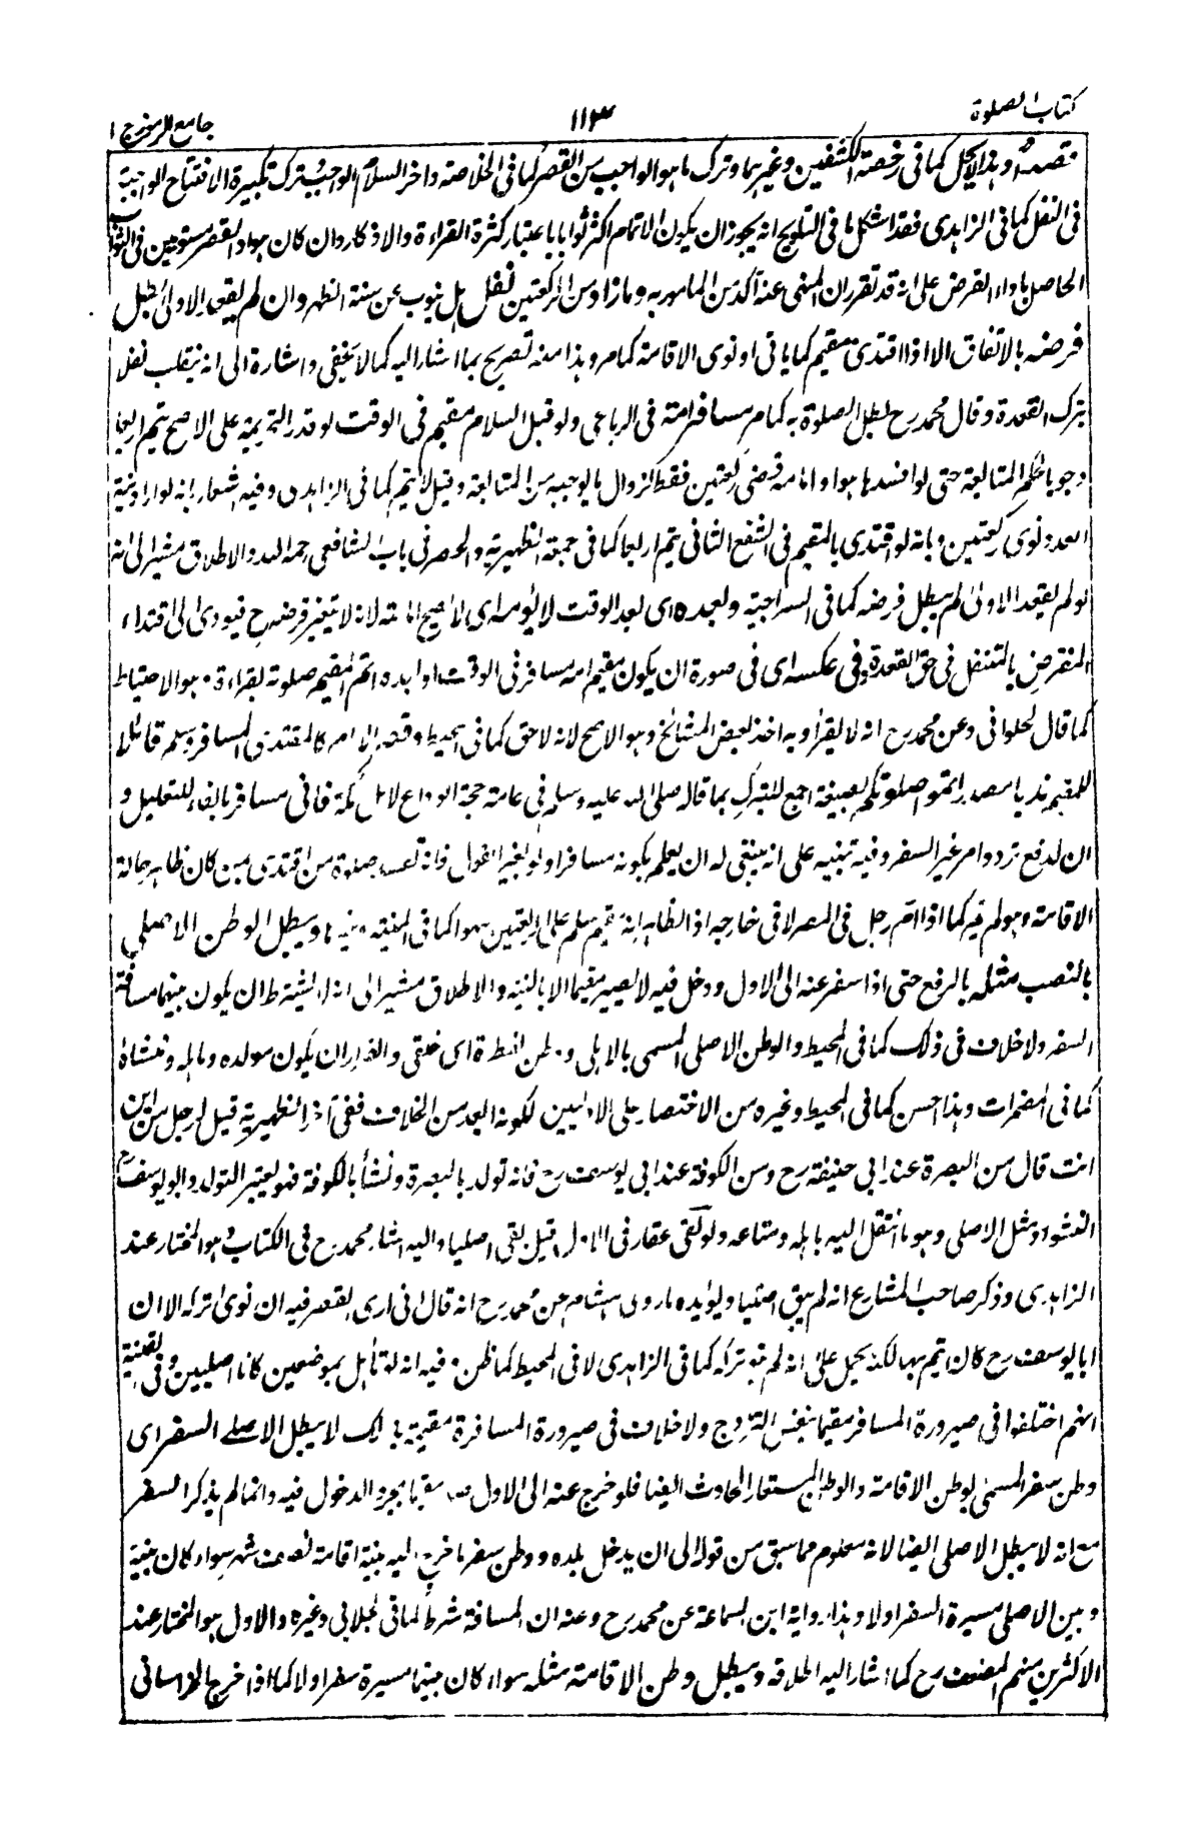 كتاب الصلوة
١١٣
جامع الرموز ج ١
قصدا وهذا لا يحل كما في رخصة الكشفين وغيرهما وترك ما هو الواجب من القصر كما في الخلاصة واخر السلام الواجب وترك تكبيرة الافتتاح الواجبة
في النفل كما في الزاهدي فقد اشكل ما في التلويح انه يجوز ان يكون الاتمام اكثر ثوابا باعتبار كثرة القراءة والاذكار وان كان هو والقصر مستويين في الثواب
الحاصل باداء الفرض على انه قد تقرر ان المنهي عنه آكد من المامور به وما زاد من الركعتين نفل بل ينوب عن سنة الظهر وان لم يقعد الاولى بطل
فرضه بالاتفاق الا اذا اقتدى بمقيم كما ياتي او نوى الاقامة كما مر وهذا منه تصريح بما اشار اليه كما لا يخفى واشارة الى انه ينقلب نفلا
بترك القعدة وقال محمد رح بطل الصلوة به كما مر مسافر امه في الرباعي ولو قبل السلام مقيم في الوقت لو قدر التحريمة على الاصح يتم اربعا
وجوبا بحكم المتابعة حتى لو افسدها هو او امامه قضى ركعتين فقط لزوال ما يوجبه من المتابعة وقيل لا يتم كما في الزاهدي وفيه اشعار بانه لو اراد نية
العدد نوى ركعتين وبانه لو اقتدى بالمقيم في الشفع الثاني يتم اربعا كما في جمعة الظهيرية والحصر في باب الشافعي رحمه الله والاطلاق مشير الى انه
لو لم يقعد الاولى لم يبطل فرضه كما في السراجية وبعده اى بعد الوقت لا يؤمه اى لا يصح امامته لانه لا يتغير فرضه ح فيودى الى اقتداء
المفترض بالمتنفل في حق القعدة وفي عكسه اى في صورة ان يكون مقيم امه مسافر في الوقت او بعده اتم المقيم صلوته بقراءة هو الاحتياط
كما قال الحلواني وعن محمد رح انه لا يقرأ وبه اخذ بعض المشائخ وهو الاصح لانه لاحق كما في المحيط وقصر الامام كالمقتدى المسافر وسلم قائلا
للمقيم ندبا اتموا صلوتكم بصيغة الجمع للتبرك بما قاله صلى الله عليه وسلم في عامة حجة الوداع لاهل مكة فاني مسافر بالفاء للتعليل و
ان لدفع تردد امر غير السفر وفيه تنبيه على انه ينبغي له ان يعلم بكونه مسافرا ولو بغير القول فانه صلوة من اقتدى بمن كان ظاهر حاله
الاقامة وهو لم فيه كما اذا ام رجل في المصر لا في خارجه اذ الظاهر انه مقيم سلم على الركعتين سهوا كما في المنية ويبطل الوطن الاصلي
بالنصب مثله بالرفع حتى اذا سفر عنه الى الاول ودخل فيه لا يصير مقيما الا بالنية والاطلاق مشير الى انه لا يشترط ان يكون بينهما مسافة
السفر ولا خلاف في ذلك كما في المحيط والوطن الاصلي المسمى بالاهلي ووطن الفطرة اى خلقي والقرار ان يكون مولده وماهله ومنشاه
كما في المضمرات وهذا احسن كما في المحيط وغيره من الاختصار على الاوليين لكونه ابعد من الخلاف ففي آخر الظهيرية قيل لرجل من اين
انت قال من البصرة عند ابي حنيفة رح ومن الكوفة عند ابي يوسف رح فانه تولد بالبصرة ونشأ بالكوفة فهو يعتبر التولد وابو يوسف رح
النشو ومثل الاصلي وهو ما انتقل اليه باهله ومتاعه ولو بقى عقار في الاول قيل بقى اصليا واليه اشار محمد رح في الكتاب وهو المختار عند
الزاهدي وذكر صاحب المشارع انه لم يبق اصليا ويؤيده ما روى هشام عن محمد رح انه قال اني ارى القصر فيه ان نوى تركه الا ان
ابا يوسف رح كان يتم بها لكنه يحمل على انه لم ينو تركه كما في الزاهدي لا في المحيط كما ظن وفيه انه لو تأهل بموضعين كانا اصليين وفي القنية
انهم اختلفوا في صيرورة المسافر مقيما بنفس التزوج ولا خلاف في صيرورة المسافرة مقيمة بذلك لا يبطل الاصلي السفر اى
وطن سفر المسمى بوطن الاقامة والوطن المستعار الحادث ايضا فلو خرج عنه الى الاول صار مقيما بمجرد الدخول فيه وانما لم يذكر السفر
مع انه لا يبطل الاصلي ايضا لانه معلوم مما سبق من قوله الى ان يدخل بلده ووطن سفر ما خرج اليه بنية اقامة نصف شهر سواء كان بينه
وبين الاصلي مسيرة السفر اولا وهذا رواية ابن السماعة عن محمد رح وعنه ان المسافة شرط كما في الجلابي وغيره والاول هو المختار عند
الاكثرين منهم المصنف رح كما اشار اليه اطلاقه ويبطل وطن الاقامة مثله سواء كان بينهما مسيرة سفر اولا كما اذا خرج الخراساني